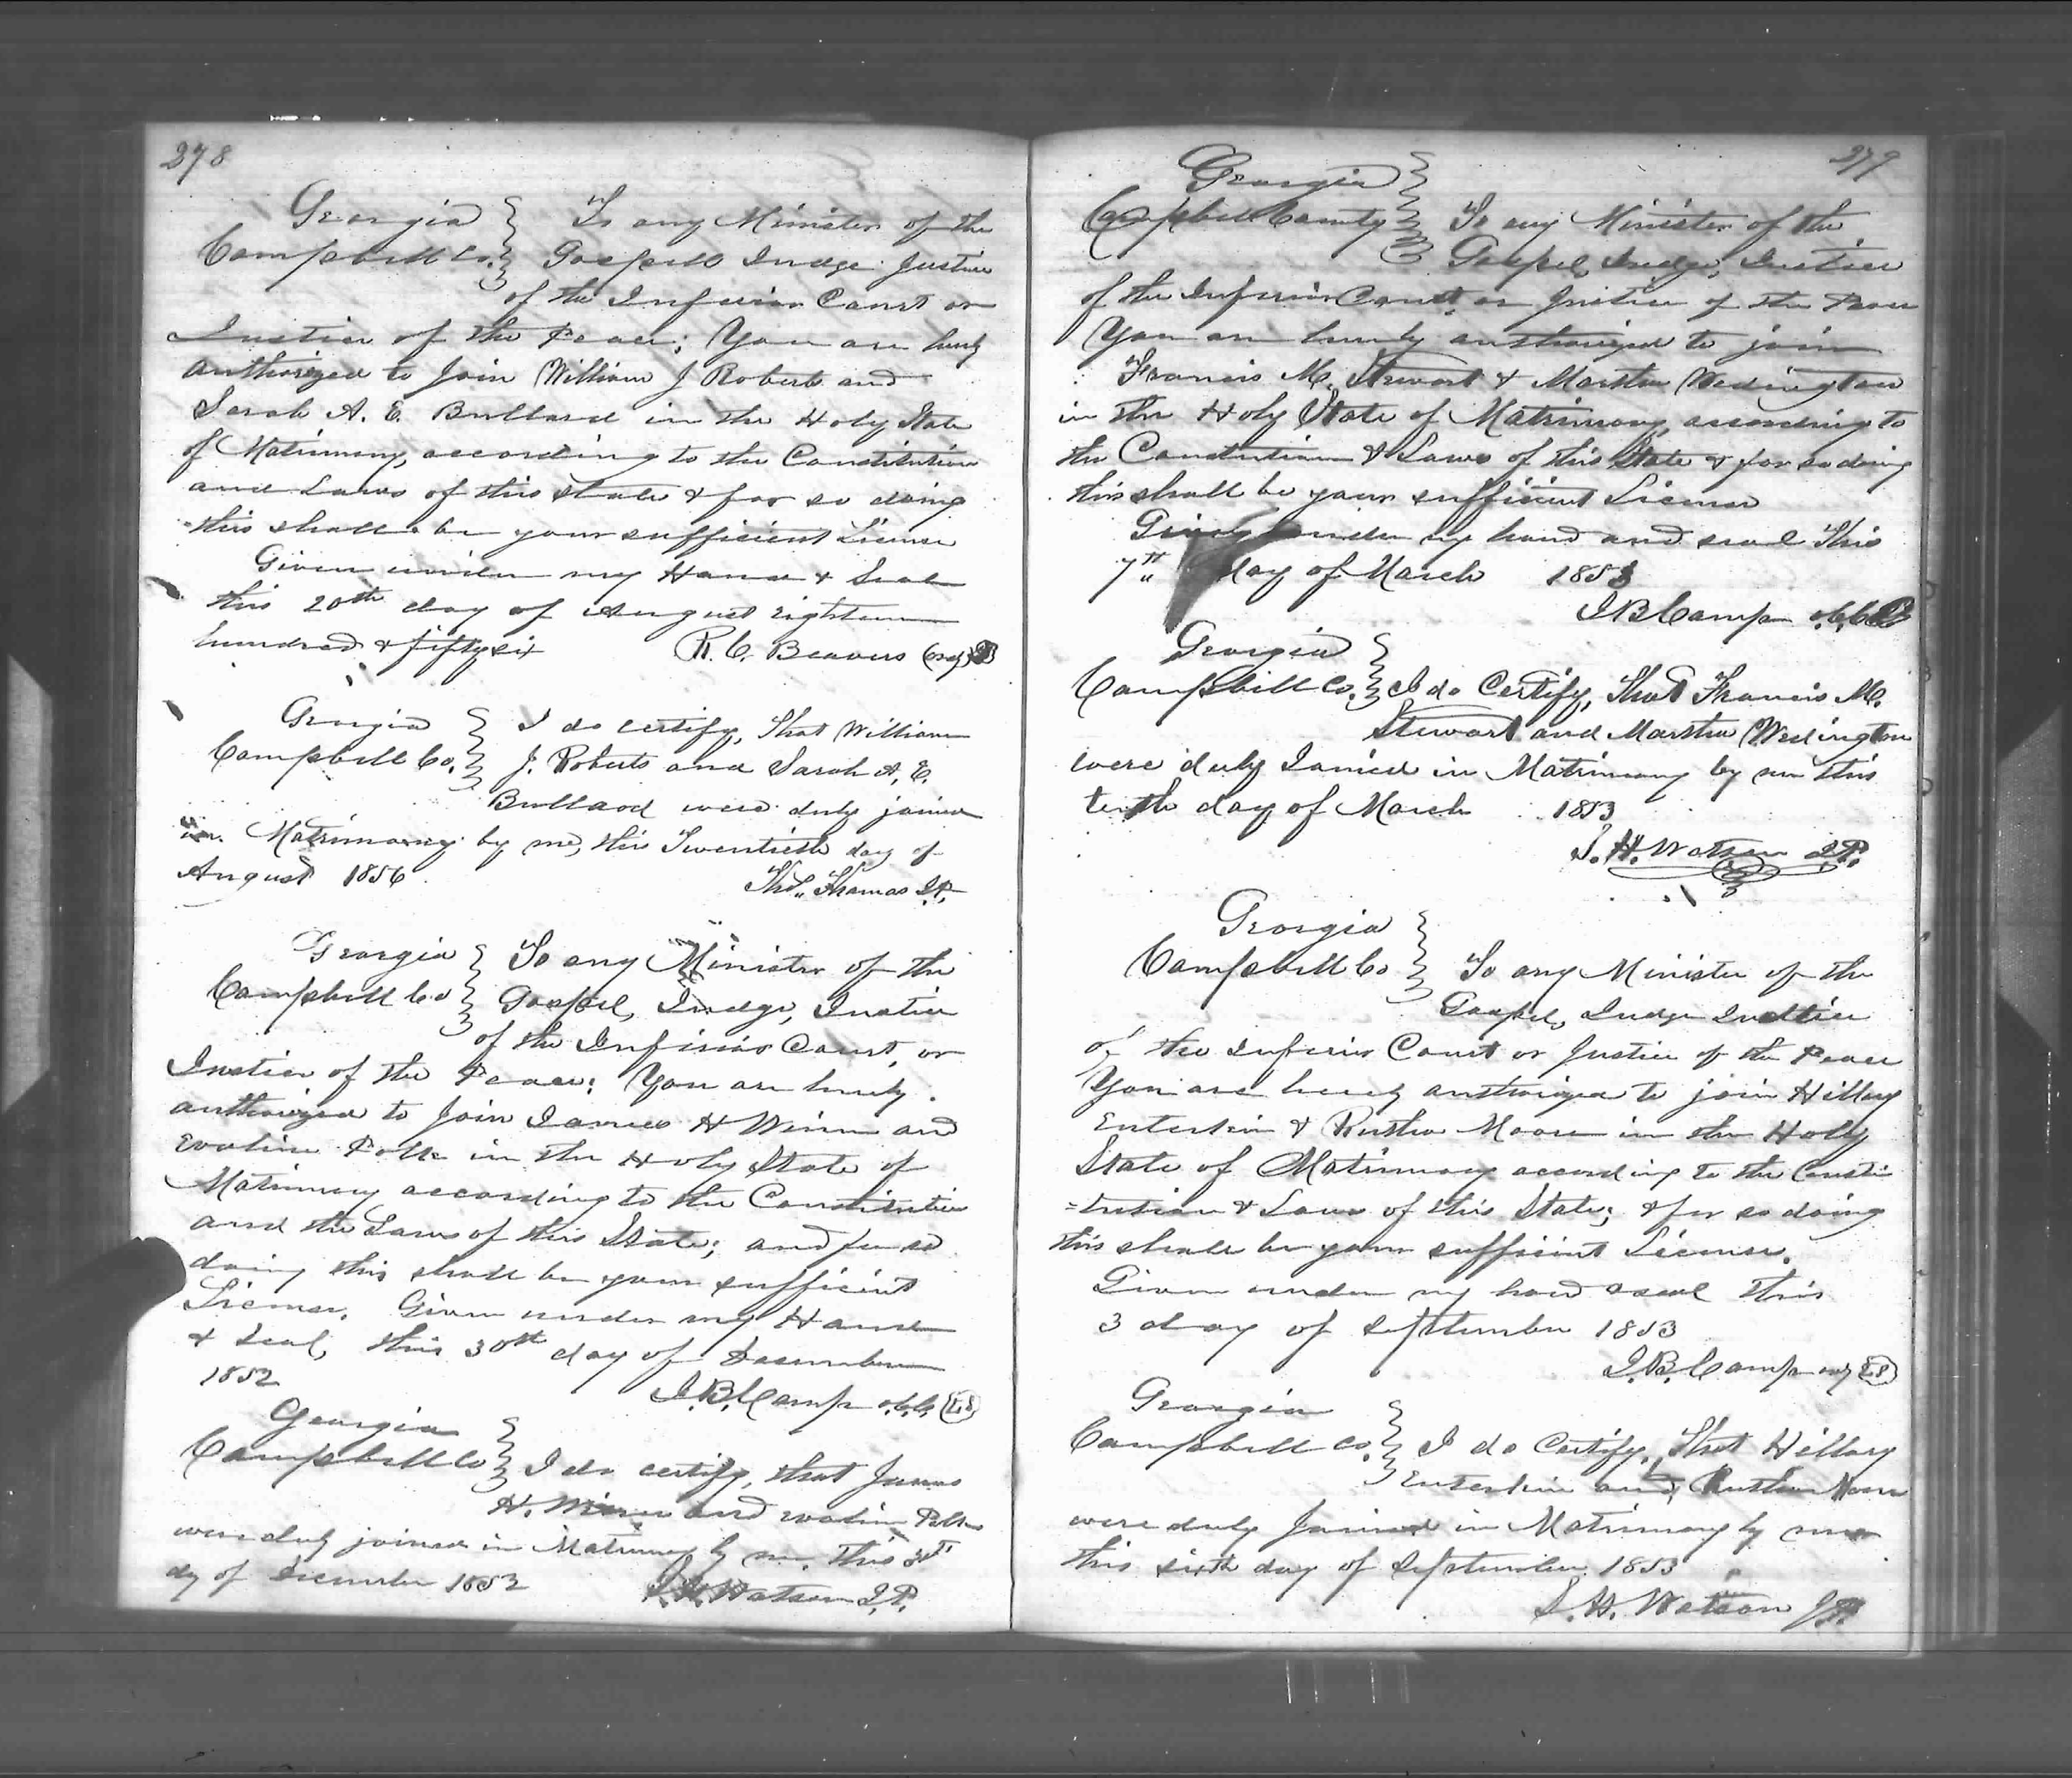 278
Georgia
Campbell Co. To any Minister of the
Gospell Judge Justice
of the Inferior Court or
Justice of the Peace; You are hereby
authorized to Join William J Roberts and
Sarah A. E. Bullard in the Holy State
of Matrimony, according to the Constitution
and Laws of this State & for so doing
this shall be your sufficient License
Given under my Hand & Seal
this 20th day of August eighteen
hundred & fifty six R. C. Beavers Ord
Georgia
Campbell Co. I do certify, That William
J. Roberts and Sarah A. E.
Bullard were duly joined
in Matrimony by me, this Twentieth day of
August 1856.
Thos. Thomas J.P.
Georgia
Campbell Co To any Minister of the
Gospel, Judge, Justice
of the Inferior Court, or
Justice of the Peace: You are hereby
authorized to Join James H Winn and
Evoline Polk in the Holy State of
Matrimony according to the Constitution
and the Laws of this State; and for so
doing this shall be your sufficient
License. Given under my Hand
& Seal, this 30th day of December
1852
J. B. Camp c.c.o. L.S.
Georgia
Campbell Co I do certify, that James
H. Winn and Evoline Polk
were duly joined in Matrimony by me, this
dy of December 1852 S. H. Watson J.P.
279
Georgia
Campbell County To any Minister of the
Gospel, Judge, Justice
of the Inferior Court, or Justice of the Peace
You are hereby authorized to join
Francis M. Stewart & Martha Wedington
in the Holy State of Matrimony, according to
the Constitution & Laws of this State & for so doing
this shall be your sufficient License
Given under my hand and seal This
7th day of March 1853
J B Camp c.c.o.
Georgia
Campbell Co. I do Certify, That Francis M.
Stewart and Martha Wedington
were duly Joined in Matrimony by me this
tenth day of March 1853
S. H. Watson J.P.
Georgia
Campbell Co To any Minister of the
Gospel, Judge Justice
of the Inferior Court or Justice of the Peace
You are hereby authorized to join Hillary
Enterkin & Rutha Moore in the Holy
State of Matrimony according to the Consti
-tution & Laws of this State; & for so doing
this shall be your sufficient License.
Given under my hand & seal this
3 day of September 1853
J. B. Camp ord L S
Georgia
Campbell Co. I do Certify, That Hillary
Enterkin and Rutha Moore
were duly Joined in Matrimony by me
this sixth day of September 1853
S. H. Watson J.P.